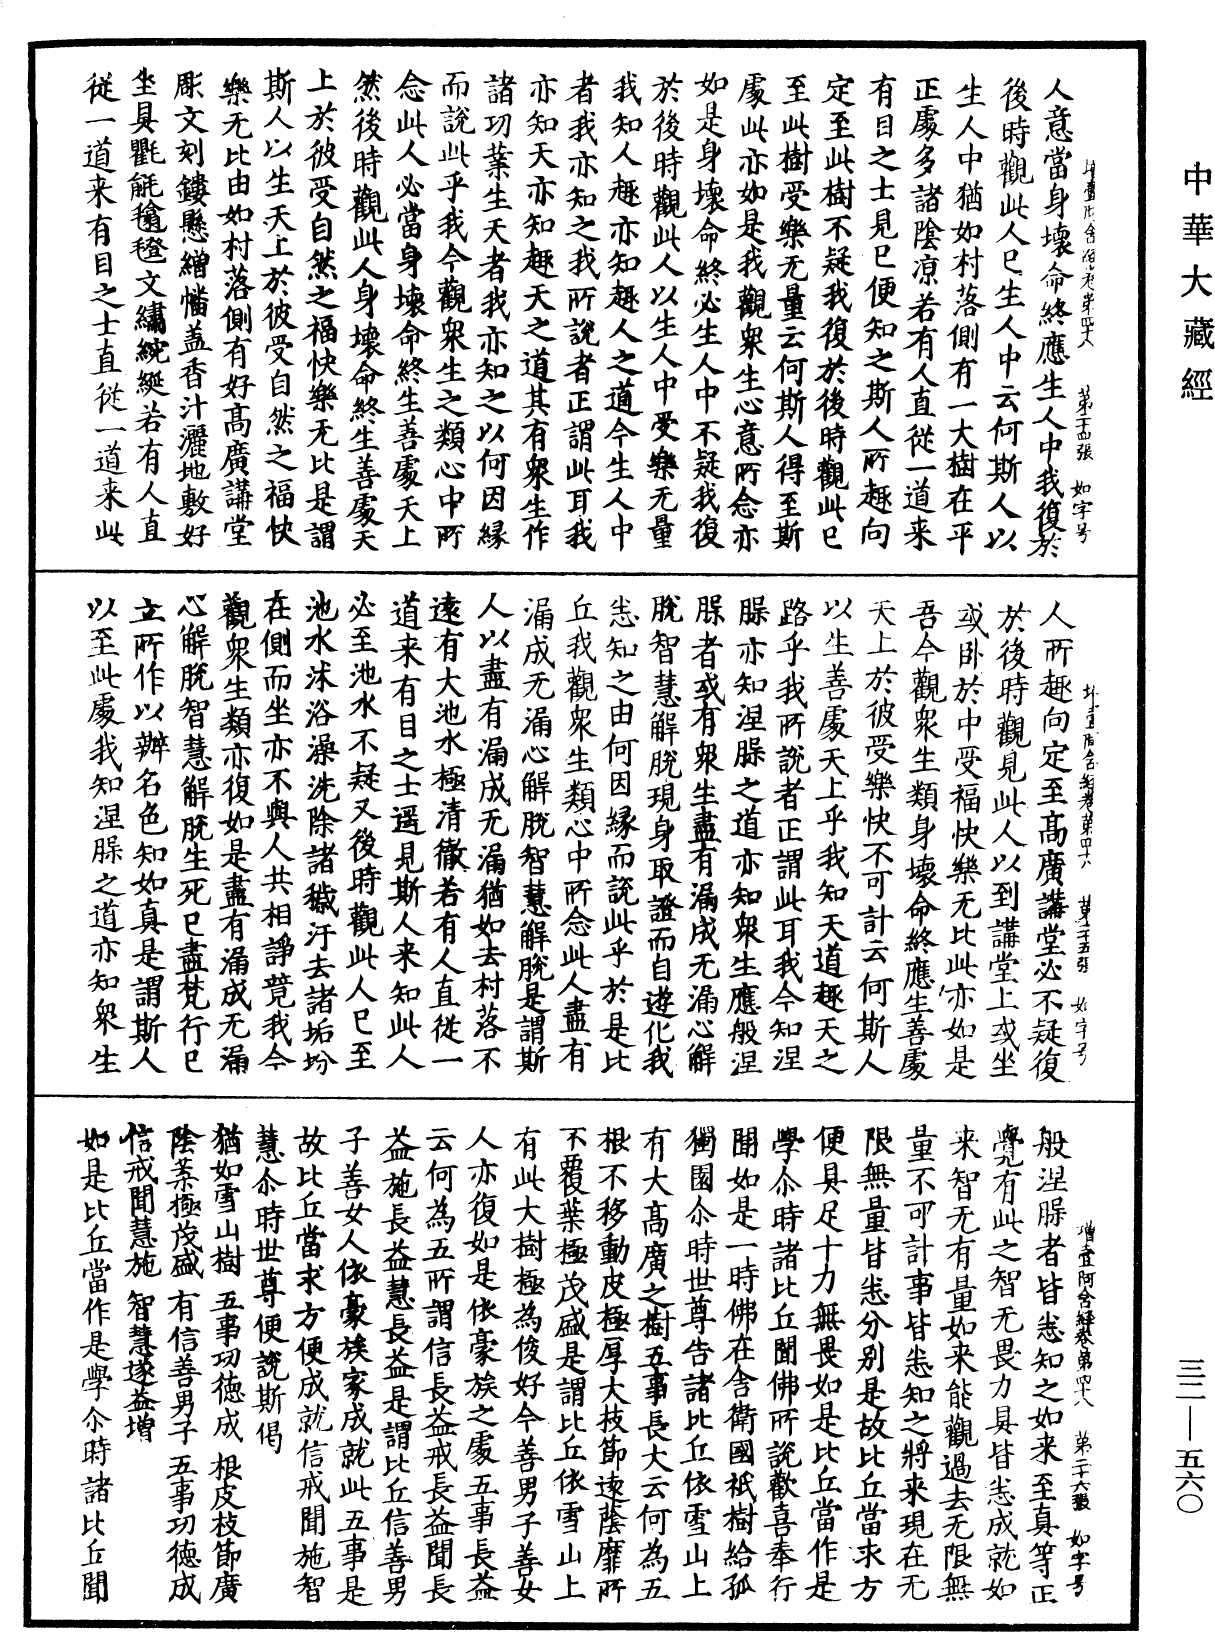 中華大藏經
人意當身壞命終應生人中我復於
後時觀此人已生人中云何斯人以
生人中猶如村落側有一大樹在平
正處多諸陰涼若有人直從一道来
有目之士見已便知之斯人所趣向
定至此樹不疑我復於後時觀此已
至此樹受樂无量云何斯人得至斯
處此亦如是我觀衆生心意所念亦
如是身壞命終必生人中不疑我復
於後時觀此人以生人中受樂无量
我知人趣亦知趣人之道今生人中
者我亦知之我所說者正謂此耳我
亦知天亦知趣天之道其有衆生作
諸功業生天者我亦知之以何因緣
而說此乎我今觀衆生之類心中所
念此人必當身壞命終生善處天上
然後時觀此人身壞命終生善處天
上於彼受自然之福快樂无比是謂
斯人以生天上於彼受自然之福快
樂无比由如村落側有好高廣講堂
彫文刻鏤懸繒幡盖香汁灑地敷好
坐具氍毹毾㲪文繡綩綖若有人直
從一道来有目之士直從一道来此
增壹阿含經卷第四十八 第二十四張 如字号
人所趣向定至高廣講堂必不疑復
於後時觀見此人以到講堂上或坐
或卧於中受福快樂无比此亦如是
吾今觀衆生類身壞命終應生善處
天上於彼受樂快不可計云何斯人
以生善處天上乎我知天道趣天之
路乎我所說者正謂此耳我今知涅
䏶亦知涅䏶之道亦知衆生應般涅
䏶者或有衆生盡有漏成无漏心解
脫智慧解脫現身取證而自遊化我
悉知之由何因緣而說此乎於是比
丘我觀衆生類心中所念此人盡有
漏成无漏心解脫智慧解脫是謂斯
人以盡有漏成无漏猶如去村落不
遠有大池水極清徹若有人直從一
道来有目之士遥見斯人来知此人
必至池水不疑又後時觀此人已至
池水沐浴澡洗除諸穢汙去諸垢坋
在側而坐亦不與人共相諍競我今
觀衆生類亦復如是盡有漏成无漏
心解脫智慧解脫生死已盡梵行已
立所作以辦名色知如真是謂斯人
以至此處我知涅䏶之道亦知衆生
增壹阿含經卷第四十八 第二十五張 如字号
般涅䏶者皆悉知之如来至真等正
覺有此之智无畏力具皆悉成就如
来智无有量如来能觀過去无限無
量不可計事皆悉知之將来現在无
限無量皆悉分别是故比丘當求方
便具足十力無畏如是比丘當作是
學尒時諸比丘聞佛所說歡喜奉行
聞如是一時佛在舍衛國祇樹給孤
獨園尒時世尊告諸比丘依雪山上
有大高廣之樹五事長大云何為五
根不移動皮極厚大枝節遠蔭靡所
不覆葉極茂盛是謂比丘依雪山上
有此大樹極為俊好今善男子善女
人亦復如是依豪族之處五事長益
云何為五所謂信長益戒長益聞長
益施長益慧長益是謂比丘信善男
子善女人依豪族家成就此五事是
故比丘當求方便成就信戒聞施智
慧尒時世尊便說斯偈
猶如雪山樹 五事功德成 根皮枝節廣
陰葉極茂盛 有信善男子 五事功德成
信戒聞慧施 智慧遂益增
如是比丘當作是學尒時諸比丘聞
增壹阿含經卷第四十八 第二十六張 如字号
三二—五六〇